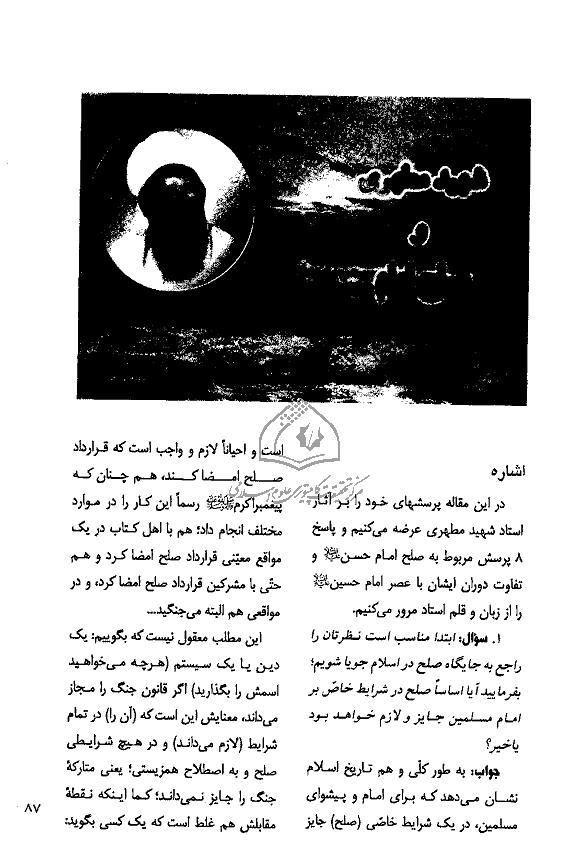 اشاره
در این مقاله پرسشهای خود را بر آثار
استاد شهید مطهری عرضه می‌کنیم و پاسخ
۸ پرسش مربوط به صلح امام حسن و
تفاوت دوران ایشان با عصر امام حسین
را از زبان و قلم استاد مرور می‌کنیم.
۱. سؤال: ابتدا مناسب است نظرتان را
راجع به جایگاه صلح در اسلام جویا شویم؛
بفرمایید آیا اساساً صلح در شرایط خاصّ بر
امام مسلمین جایز و لازم خواهد بود
یا خیر؟
جواب: به طور کلّی و هم تاریخ اسلام
نشان می‌دهد که برای امام و پیشوای
مسلمین، در یک شرایط خاصّی (صلح) جایز
است و احیاناً لازم و واجب است که قرارداد
صلح امضا کند، هم چنان که
پیغمبراکرم رسماً این کار را در موارد
مختلف انجام داد؛ هم با اهل کتاب در یک
مواقع معیّنی قرارداد صلح امضا کرد و هم
حتّی با مشرکین قرارداد صلح امضا کرد، و در
مواقعی هم البته می‌جنگید....
این مطلب معقول نیست که بگوییم: یک
دین یا یک سیستم (هرچه می‌خواهید
اسمش را بگذارید) اگر قانون جنگ را مجاز
می‌داند، معنایش این است که (آن را) در تمام
شرایط (لازم می‌داند) و در هیچ شرایطی
صلح و به اصطلاح همزیستی؛ یعنی متارکهٔ
جنگ را جایز نمی‌داند؛ کما اینکه نقطهٔ
مقابلش هم غلط است که یک کسی بگوید:
۸۷